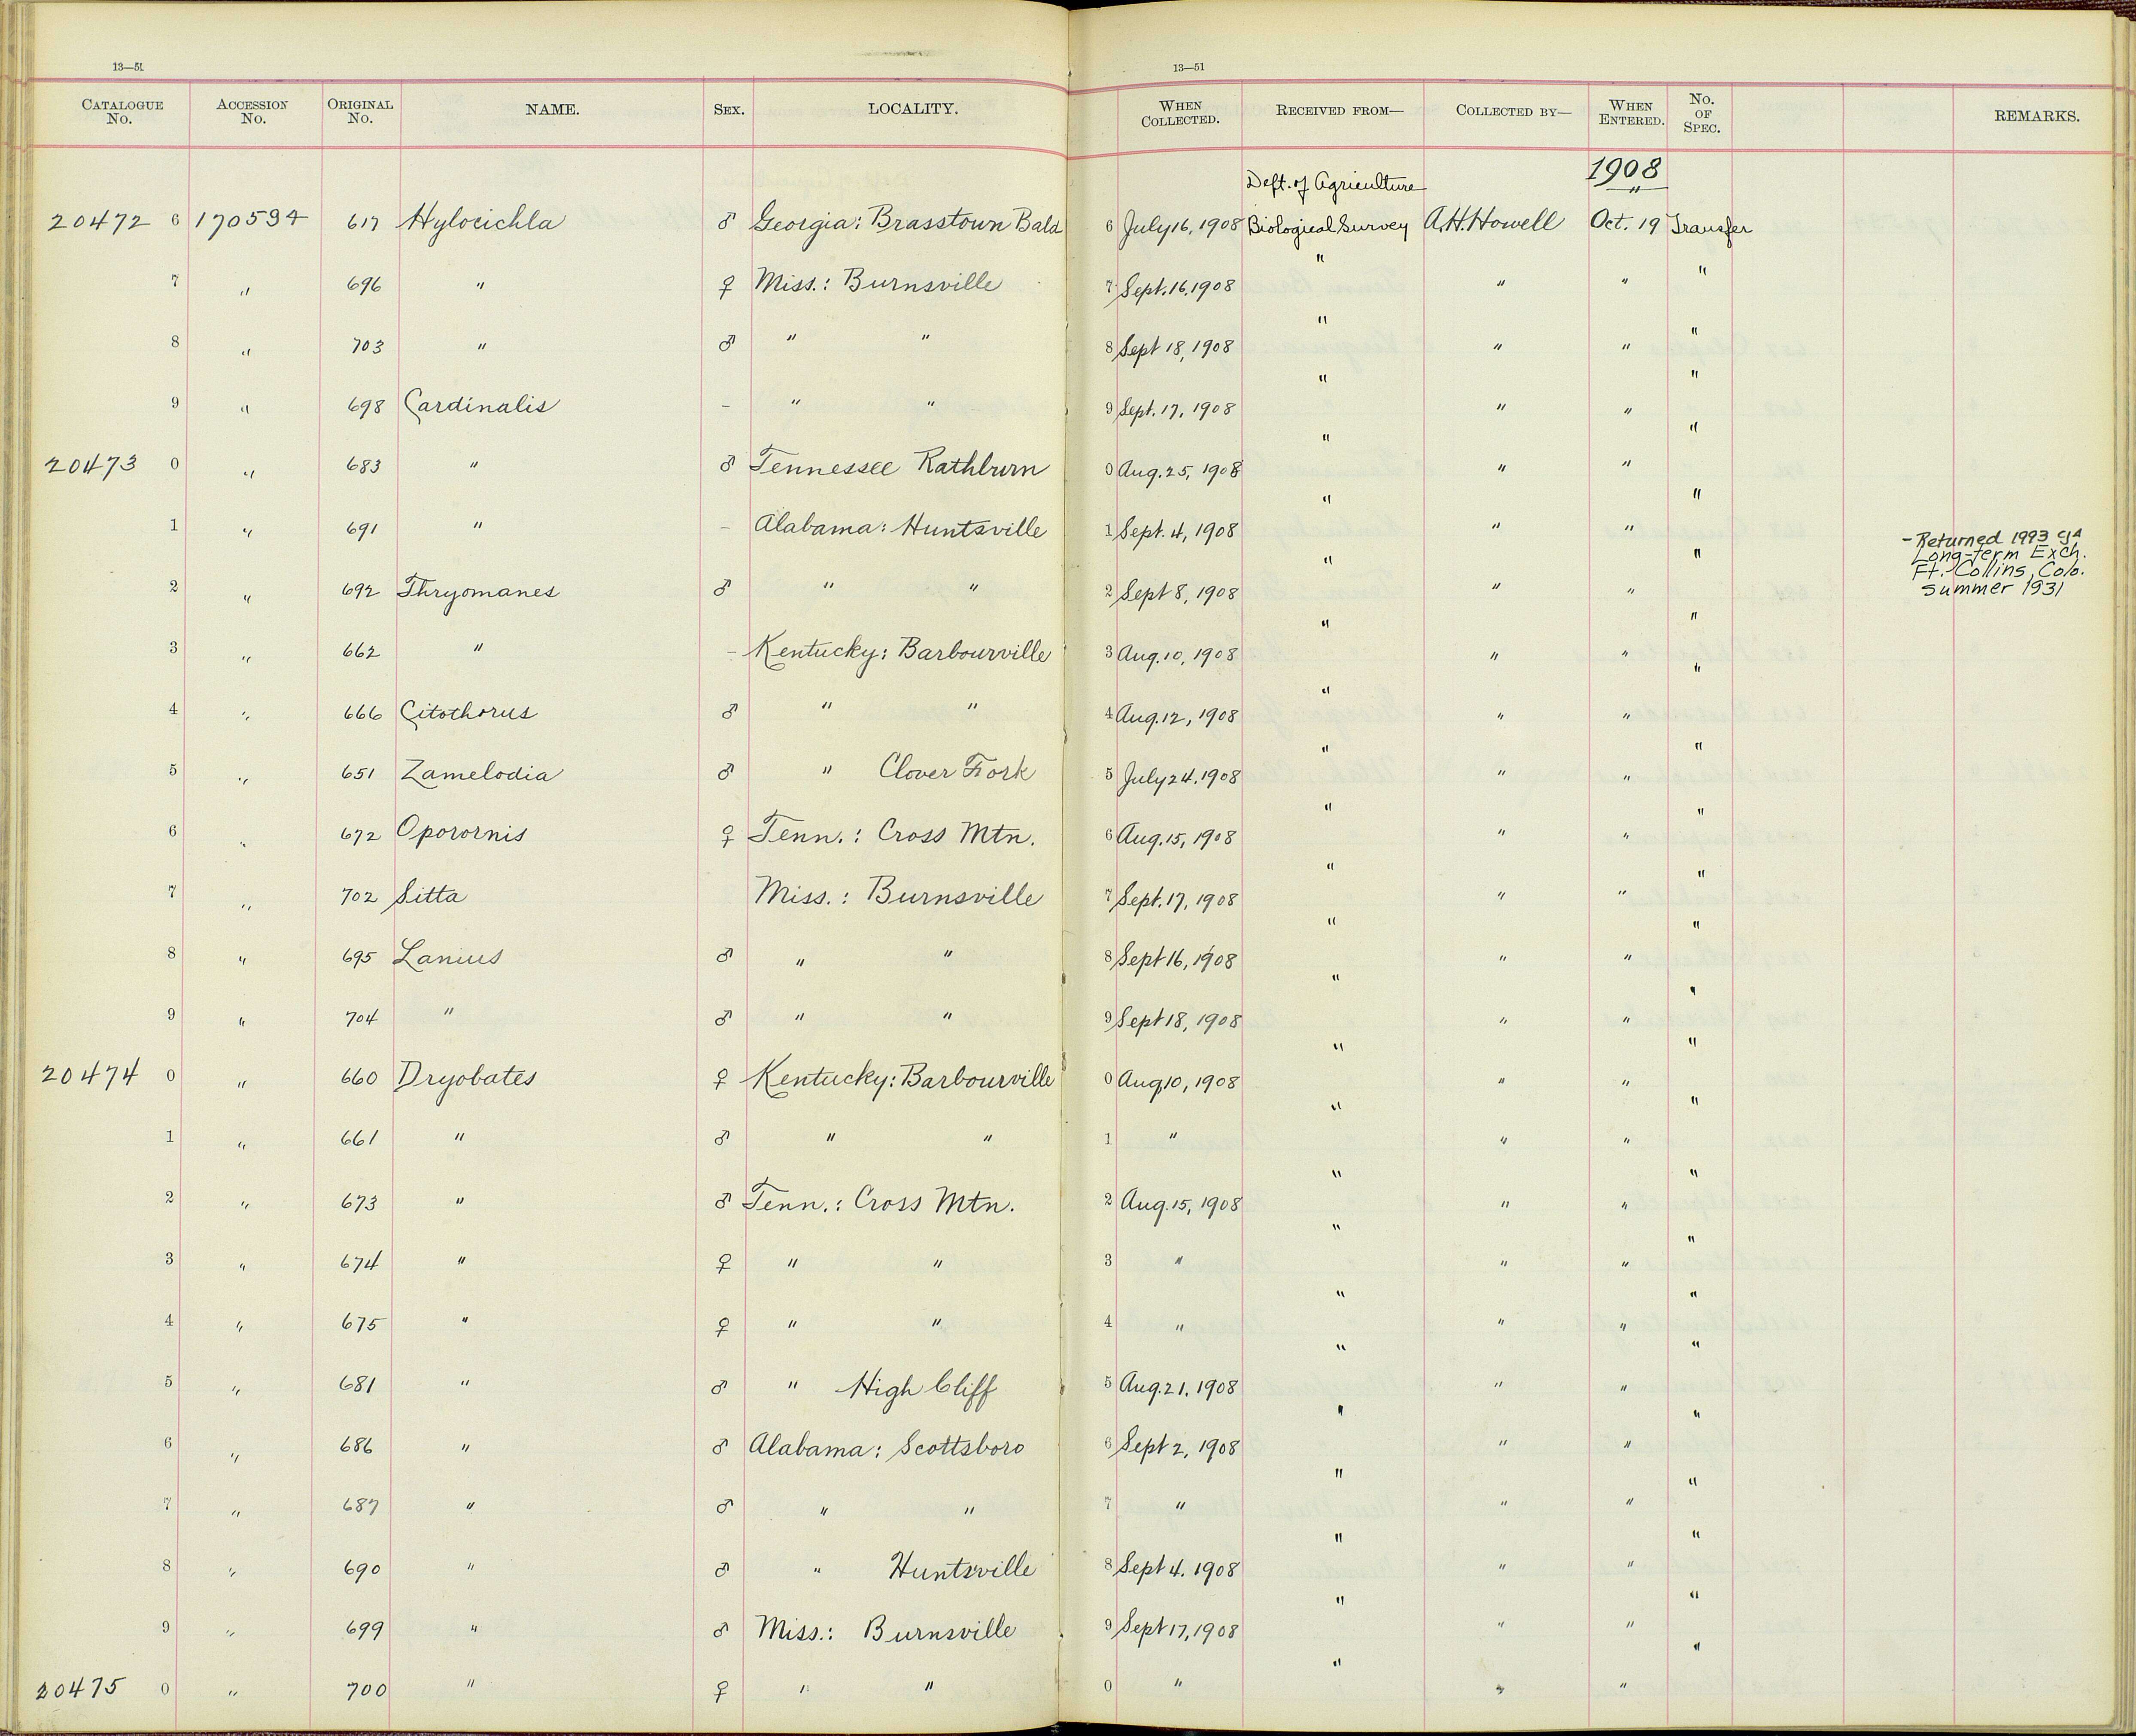 13—51 13—51
CATALOGUE No. ACCESSION No. ORIGINAL No. NAME. SEX. LOCALITY. WHEN COLLECTED. RECEIVED FROM— COLLECTED BY— WHEN ENTERED. No. OF SPEC. REMARKS.
1908
Dept. of Agriculture "
20472 6 170594 617 Hylocichla ♂ Georgia: Brasstown Bald 6 July 16, 1908 Biological Survey A.H. Howell Oct. 19 Transfer
7 " 696 " ♀ Miss.: Burnsville 7 Sept. 16, 1908 " " " "
8 " 703 " ♂ " " 8 Sept 18, 1908 " " " "
9 " 698 Cardinalis – " " 9 Sept. 17, 1908 " " " "
20473 0 " 683 " ♂ Tennessee Rathburn 0 Aug. 25, 1908 " " " "
1 " 691 " – Alabama: Huntsville 1 Sept. 4, 1908 " " " "
– Returned 1993 as
Long-term Exch.
Ft. Collins, Colo.
Summer 1931
2 " 692 Thryomanes ♂ " " 2 Sept 8, 1908 " " " "
3 " 662 " – Kentucky: Barbourville 3 Aug. 10, 1908 " " " "
4 " 666 Citothorus ♂ " " 4 Aug. 12, 1908 " " " "
5 " 651 Zamelodia ♂ " Clover Fork 5 July 24, 1908 " " " "
6 " 672 Oporornis ♀ Tenn.: Cross Mtn. 6 Aug. 15, 1908 " " " "
7 " 702 Sitta Miss.: Burnsville 7 Sept. 17, 1908 " " " "
8 " 695 Lanius ♂ " " 8 Sept 16, 1908 " " " "
9 " 704 " ♂ " " 9 Sept 18, 1908 " " " "
20474 0 " 660 Dryobates ♀ Kentucky: Barbourville 0 Aug 10, 1908 " " " "
1 " 661 " ♂ " " 1 " " " " "
2 " 673 " ♂ Tenn.: Cross Mtn. 2 Aug. 15, 1908 " " " "
3 " 674 " ♀ " " 3 " " " " "
4 " 675 " ♀ " " 4 " " " " "
5 " 681 " ♂ " High Cliff 5 Aug. 21, 1908 " " " "
6 " 686 " ♂ Alabama: Scottsboro 6 Sept 2, 1908 " " " "
7 " 687 " ♂ " " 7 " " " " "
8 " 690 " ♂ " Huntsville 8 Sept 4. 1908 " " " "
9 " 699 " ♂ Miss.: Burnsville 9 Sept 17, 1908 " " " "
20475 0 " 700 " ♀ " " 0 " " " " "